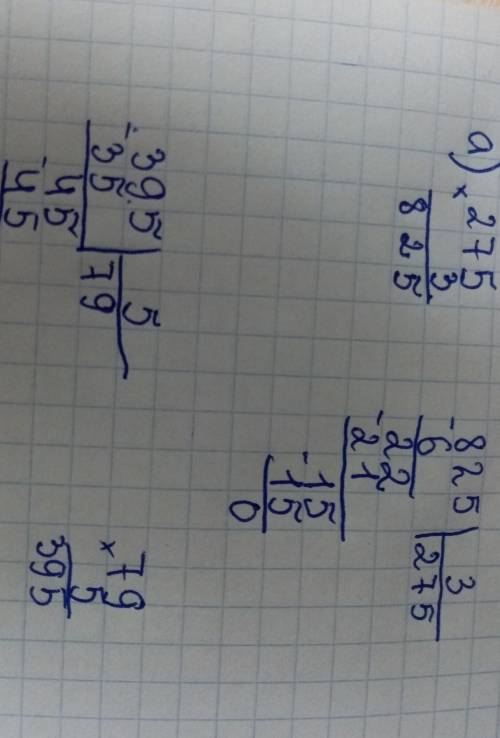 а) × 275
3
825
- 825 | 3
6 | 275
- 22
21
- 15
15
0
- 395 | 5
35 | 79
- 45
45
× 79
5
395